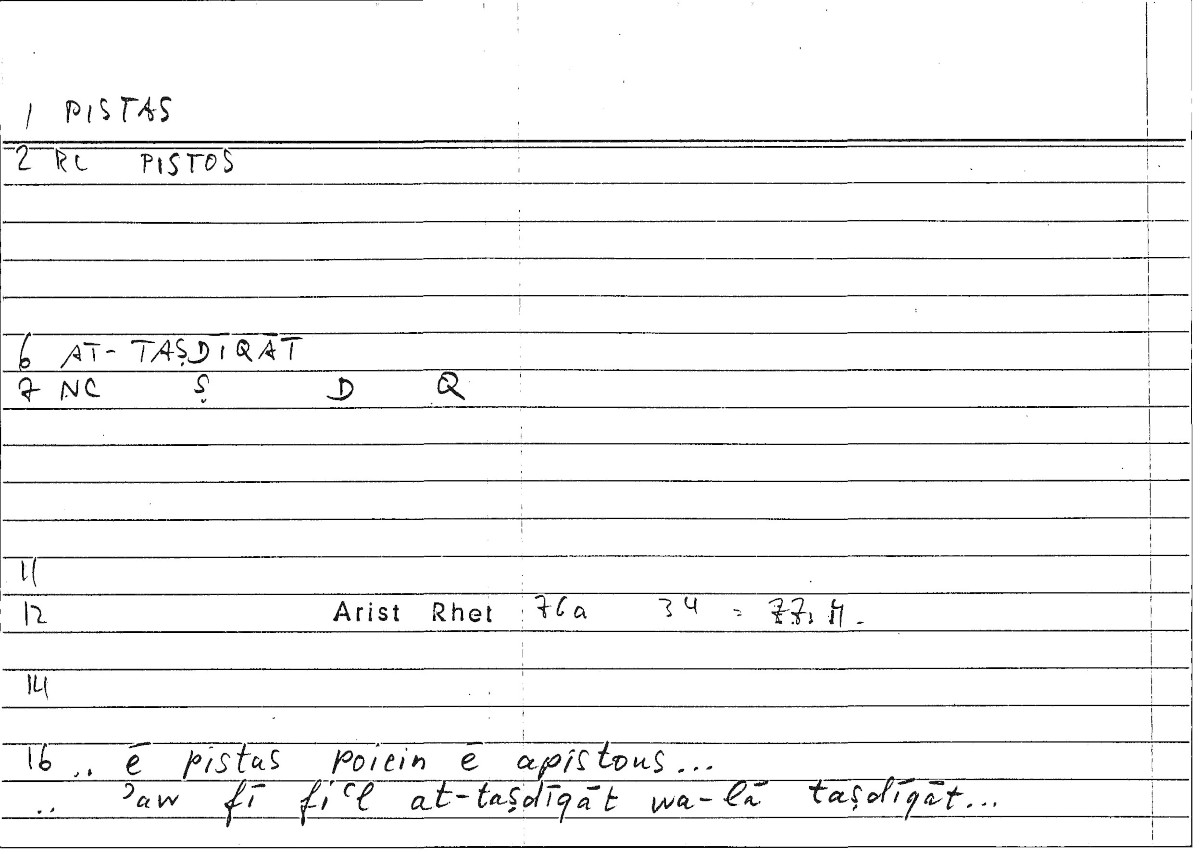 1 PISTAS
2 RC PISTOS
6 AT-TAṢDĪQĀT
7 NC Ṣ D Q
11
12 Arist Rhet 76a 34 = 77.
14
16 .. ē pistas poiein ē apistous...
.. ʾaw fī fiʿl at-taṣdīqāt wa-lā taṣdīqāt...